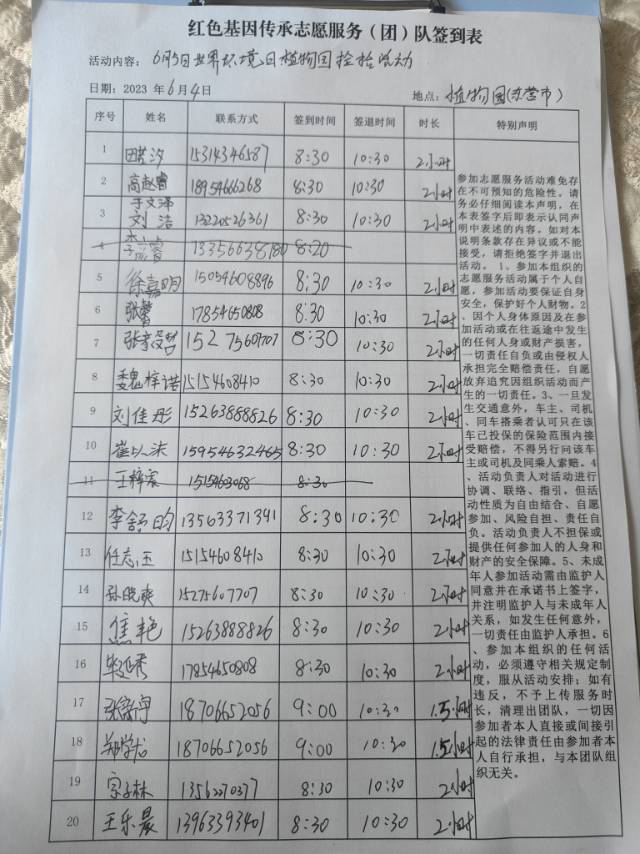 红色基因传承志愿服务（团）队签到表
活动内容：6月5日世界环境日植物园捡拾活动
日期：2023 年6月4日 地点：植物园(东营市)
序号 姓名 联系方式 签到时间 签退时间 时长 特别声明
1 15314346587 8:30 10:30 2小时
2 高赵睿 18954666268 8:30 10:30 2小时
于文泽
3 刘洁 13220526361 8:30 10:30 2小时
4 13356638180 8:20
5 徐嘉明 15054608896 8:30 10:30 2小时
6 张蕾 17854650808 8:30 10:30 2小时
7 15275607707 8:30 10:30 2小时
8 魏梓诺 15154608410 8:30 10:30 2小时
9 刘佳彤 15263888826 8:30 10:30 2小时
10 崔以沫 15954632465 8:30 10:30 2小时
11 王梓宸 8:30
12 李舒昀 13563371391 8:30 10:30 2小时
13 任志玉 15154608410 8:30 10:30 2小时
14 孙晓爽 15275607707 8:30 10:30 2小时
15 焦艳 15263888826 8:30 10:30 2小时
16 17854650808 8:30 10:30 2小时
17 18706652056 9:00 10:30 1.5小时
18 郑学龙 18706652056 9:00 10:30 1.5小时
19 宗子林 13562270377 8:30 10:30 2小时
20 王乐晨 13963393401 8:30 10:30 2小时
参加志愿服务活动难免存
在不可预知的危险性。请
务必仔细阅读本声明，在
本表签字后即表示认同声
明中表述的内容。如对本
说明条款存在异议或不能
接受，请拒绝签字并退出
活动。1、参加本组织的
志愿服务活动属于个人自
愿，参加活动要保证自身
安全，保护好个人财物。2
、因个人身体原因及在参
加活动或在往返途中发生
的任何人身或财产损害，
一切责任自负或由侵权人
承担完全赔偿责任，自愿
放弃追究因组织活动而产
生的一切责任。3、一旦发
生交通意外，车主、司机
、同车搭乘者认可只在该
车己投保的保险范围内接
受赔偿，不得另行向该车
主或司机及同乘人索赔。4
、活动负责人对活动进行
协调、联络、指引，但活
动性质为自由结合、自愿
参加、风险自担、责任自
负。活动负责人不担保或
提供任何参加人的人身和
财产的安全保障。5、未成
年人参加活动需由监护人
同意并在承诺书上签字，
并注明监护人与未成年人
关系，如发生任何意外，
一切责任由监护人承担。6
、参加本组织的任何活
动，必须遵守相关规定制
度，服从活动安排；如有
违反，不予上传服务时
长，清理出团队，一切因
参加者本人直接或间接引
起的法律责任由参加者本
人自行承担，与本团队组
织无关。